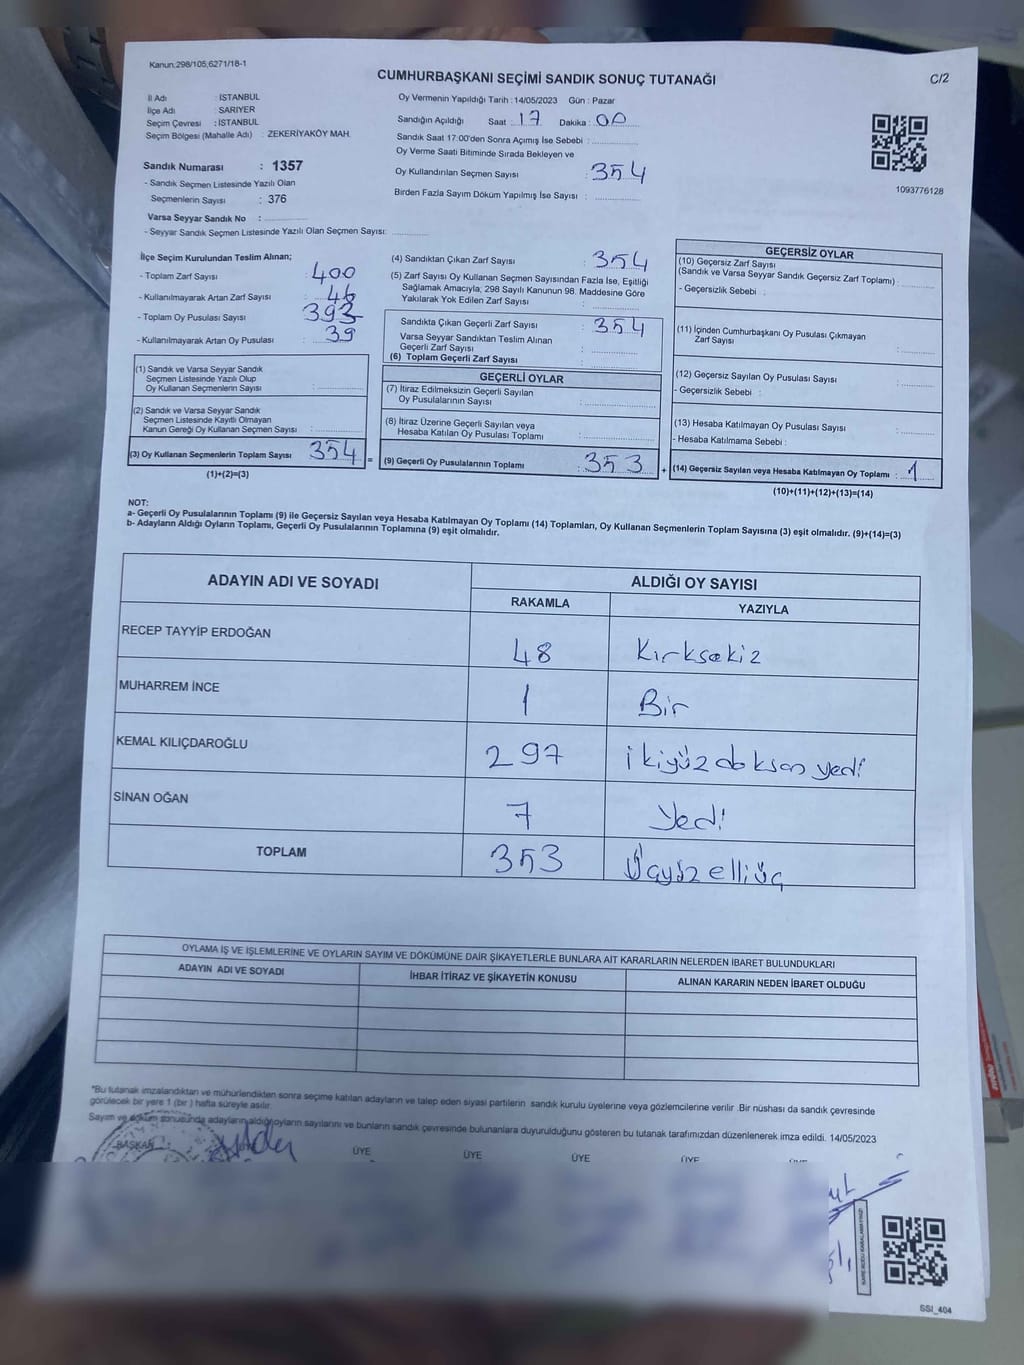 Kanun:298/105;6271/18-1
CUMHURBAŞKANI SEÇİMİ SANDIK SONUÇ TUTANAĞI
C/2
İl Adı : İSTANBUL
İlçe Adı : SARIYER
Seçim Çevresi : İSTANBUL
Seçim Bölgesi (Mahalle Adı) : ZEKERİYAKÖY MAH.
Sandık Numarası : 1357
- Sandık Seçmen Listesinde Yazılı Olan
Seçmenlerin Sayısı : 376
Varsa Seyyar Sandık No :
- Seyyar Sandık Seçmen Listesinde Yazılı Olan Seçmen Sayısı:
Oy Vermenin Yapıldığı Tarih : 14/05/2023 Gün : Pazar
Sandığın Açıldığı Saat : 17 Dakika : 00
Sandık Saat 17:00'den Sonra Açımış İse Sebebi :
Oy Verme Saati Bitiminde Sırada Bekleyen ve
Oy Kullandırılan Seçmen Sayısı : 354
Birden Fazla Sayım Döküm Yapılmış İse Sayısı :
1093776128
İlçe Seçim Kurulundan Teslim Alınan;
- Toplam Zarf Sayısı : 400
- Kullanılmayarak Artan Zarf Sayısı : 46
- Toplam Oy Pusulası Sayısı : 393
- Kullanılmayarak Artan Oy Pusulası : 39
(1) Sandık ve Varsa Seyyar Sandık
Seçmen Listesinde Yazılı Olup
Oy Kullanan Seçmenlerin Sayısı :
(2) Sandık ve Varsa Seyyar Sandık
Seçmen Listesinde Kayıtlı Olmayan
Kanun Gereği Oy Kullanan Seçmen Sayısı :
(3) Oy Kullanan Seçmenlerin Toplam Sayısı : 354
(1)+(2)=(3)
(4) Sandıktan Çıkan Zarf Sayısı : 354
(5) Zarf Sayısı Oy Kullanan Seçmen Sayısından Fazla İse, Eşitliği
Sağlamak Amacıyla; 298 Sayılı Kanunun 98. Maddesine Göre
Yakılarak Yok Edilen Zarf Sayısı :
Sandıkta Çıkan Geçerli Zarf Sayısı : 354
Varsa Seyyar Sandıktan Teslim Alınan
Geçerli Zarf Sayısı :
(6) Toplam Geçerli Zarf Sayısı :
GEÇERLİ OYLAR
(7) İtiraz Edilmeksizin Geçerli Sayılan
Oy Pusulalarının Sayısı :
(8) İtiraz Üzerine Geçerli Sayılan veya
Hesaba Katılan Oy Pusulası Toplamı :
= (9) Geçerli Oy Pusulalarının Toplamı : 353
GEÇERSİZ OYLAR
(10) Geçersiz Zarf Sayısı
(Sandık ve Varsa Seyyar Sandık Geçersiz Zarf Toplamı) :
- Geçersizlik Sebebi :
(11) İçinden Cumhurbaşkanı Oy Pusulası Çıkmayan
Zarf Sayısı :
(12) Geçersiz Sayılan Oy Pusulası Sayısı :
- Geçersizlik Sebebi :
(13) Hesaba Katılmayan Oy Pusulası Sayısı :
- Hesaba Katılmama Sebebi :
+ (14) Geçersiz Sayılan veya Hesaba Katılmayan Oy Toplamı : 1
(10)+(11)+(12)+(13)=(14)
NOT:
a- Geçerli Oy Pusulalarının Toplamı (9) ile Geçersiz Sayılan veya Hesaba Katılmayan Oy Toplamı (14) Toplamları, Oy Kullanan Seçmenlerin Toplam Sayısına (3) eşit olmalıdır. (9)+(14)=(3)
b- Adayların Aldığı Oyların Toplamı, Geçerli Oy Pusulalarının Toplamına (9) eşit olmalıdır.
ADAYIN ADI VE SOYADI
ALDIĞI OY SAYISI
RAKAMLA YAZIYLA
RECEP TAYYİP ERDOĞAN 48 Kırksekiz
MUHARREM İNCE 1 Bir
KEMAL KILIÇDAROĞLU 297 ikiyüzdoksanyedi
SİNAN OĞAN 7 Yedi
TOPLAM 353 Üçyüzelliüç
OYLAMA İŞ VE İŞLEMLERİNE VE OYLARIN SAYIM VE DÖKÜMÜNE DAİR ŞİKAYETLERLE BUNLARA AİT KARARLARIN NELERDEN İBARET BULUNDUKLARI
ADAYIN ADI VE SOYADI İHBAR İTİRAZ VE ŞİKAYETİN KONUSU ALINAN KARARIN NEDEN İBARET OLDUĞU
*Bu tutanak imzalandıktan ve mühürlendikten sonra seçime katılan adayların ve talep eden siyasi partilerin sandık kurulu üyelerine veya gözlemcilerine verilir .Bir nüshası da sandık çevresinde
görülecek bir yere 1 (bir ) hafta süreyle asılır.
Sayım ve döküm sonucunda adayların aldığı oyların sayılarını ve bunların sandık çevresinde bulunanlara duyurulduğunu gösteren bu tutanak tarafımızdan düzenlenerek imza edildi. 14/05/2023
BAŞKAN ÜYE ÜYE ÜYE ÜYE
SSI_404